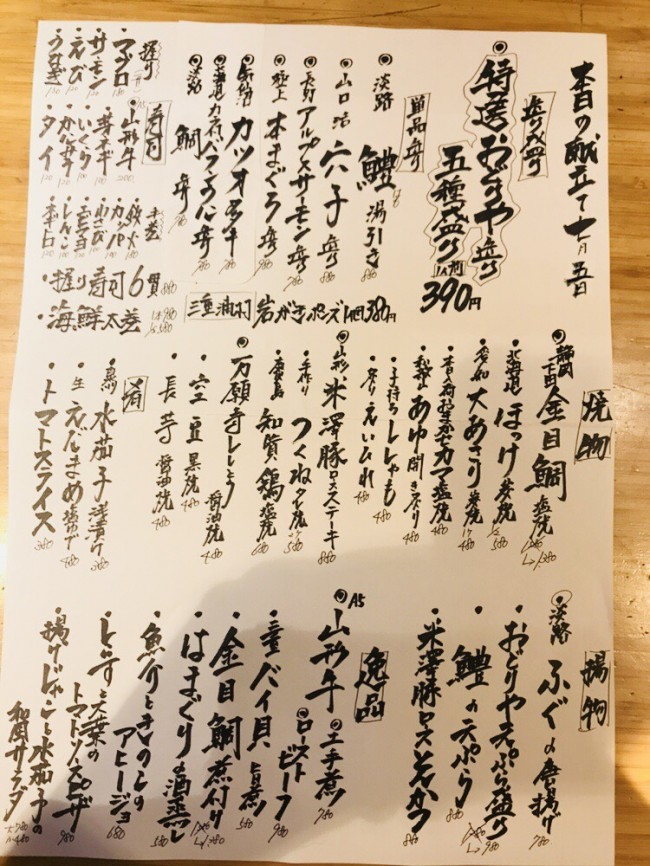 本日の献立て 十月五日
造り盛り
◎特選おどりや造り
五種盛り 1人前 390円
単品造
◎淡路 鱧 湯引き 880
山口 活 穴子 造り 880
◎長野 アルプスサーモン 造 780
◎極上 本まぐろ 造 980
カツオタタキ 780
北海道 バフンうに 造
◎淡路 鯛 造 780
三重浦村 岩がきポン酢 1個 380円
寿司
握り
マグロ
サーモン
えび
うなぎ
山形牛
芽ネギ
いくら
タイ
手巻
鉄火
カッパ
しんこ
・握り寿司6貫 880
・海鮮太巻
焼物
◎静岡 下田 金目鯛 塩焼
北海道 ほっけ 炭焼
愛知 大あさり 炭焼 480
カマ塩焼 480
和歌山 あゆ 開き炙り
・子持ちししゃも 480
・炙り えいひれ 480
◎山形 米澤豚ロースステーキ 880
・手作り つくねタレ焼 580
・鹿児島 知覧鶏 塩焼 680
◎万願寺ししとう 醤油焼 480
・空豆 黒焼 480
・長芋 醤油焼 480
肴
・泉州 水茄子 浅漬け 380
・生 えだまめ 塩ゆで 480
・トマトスライス 380
揚物
◎淡路 ふぐの唐揚げ 780
・おどりや天ぷら盛り
・鱧の天ぷら 880
・米澤豚ロースとんかつ 880
逸品
◎A5 山形牛 ◎土手煮 780
◎ローストビーフ 980
・三重 バイ貝 旨煮 580
・金目鯛 煮付け
・はまぐりの酒蒸し 580
・魚介ときのこのアヒージョ 680
・しらすと大葉のトマトソースピザ 980
・揚げじゃこと水茄子の和風サラダ 大780 小480